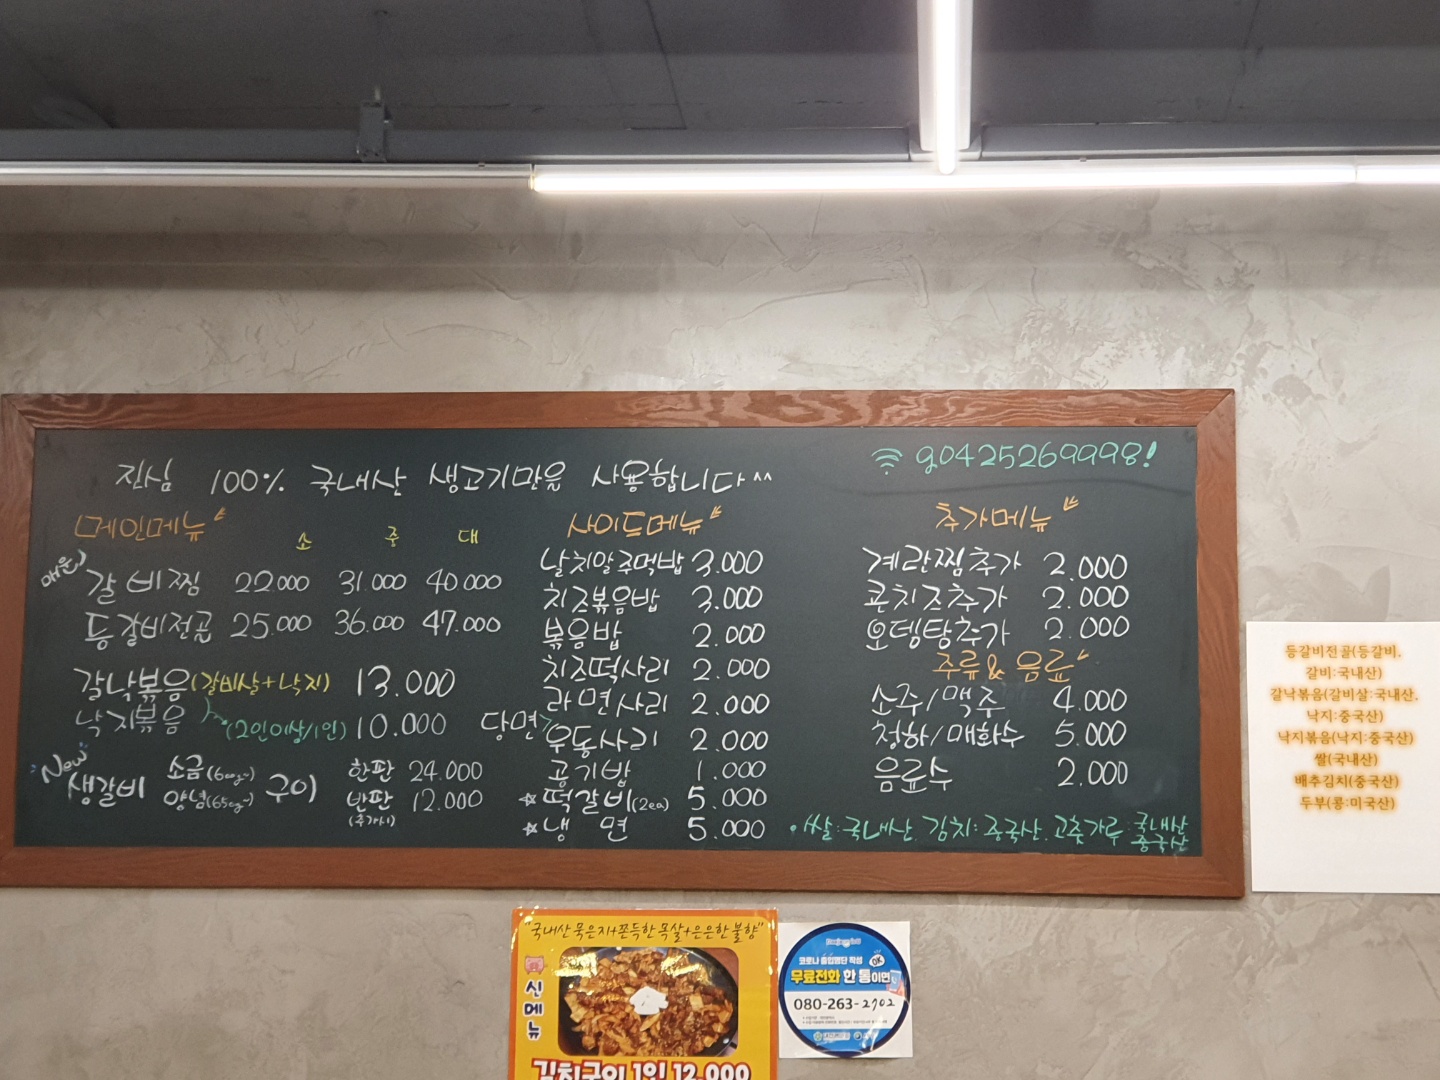 진심 100% 국내산 생고기만을 사용합니다^^
90425269998!
메인메뉴
소 중 대
매운)
갈비찜 22.000 31.000 40.000
등갈비전골 25.000 36.000 47.000
갈낙볶음(갈비살+낙지) 13.000
낙지볶음 (2인이상/1인) 10.000
New
생갈비 소금(600g~) 양념(650g~) 구이
한판 24.000
반판 12.000
(추가시)
사이드메뉴
날치알주먹밥 3.000
치즈볶음밥 3.000
볶음밥 2.000
치즈떡사리 2.000
라면사리 2.000
당면>우동사리 2.000
공기밥 1.000
☆떡갈비(2ea) 5.000
☆냉면 5.000
추가메뉴
계란찜추가 2.000
콘치즈추가 2.000
오뎅탕추가 2.000
주류&음료
소주/맥주 4.000
청하/매화수 5.000
음료수 2.000
•쌀:국내산, 김치:중국산, 고춧가루:국내산 중국산
등갈비전골(등갈비,
갈비:국내산)
갈낙볶음(갈비살:국내산,
낙지:중국산)
낙지볶음(낙지:중국산)
쌀(국내산)
배추김치(중국산)
두부(콩:미국산)
"국내산 묵은지+쫀득한 목살+은은한 불향"
신메뉴
김치구이 1인 12,000
코로나 출입명단 작성
OK
무료전화 한 통이면
080-263-2702